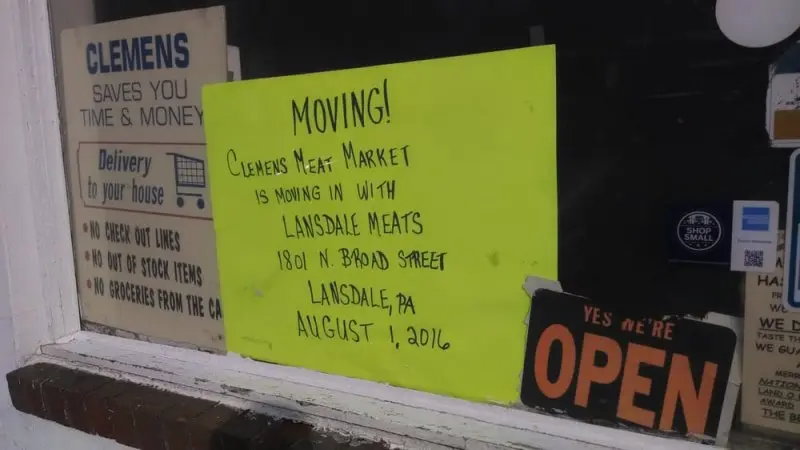 CLEMENS
SAVES YOU
TIME & MONEY
Delivery
to your house
• NO CHECK OUT LINES
• NO OUT OF STOCK ITEMS
• NO GROCERIES FROM THE
MOVING!
CLEMENS MEAT MARKET
IS MOVING IN WITH
LANSDALE MEATS
1801 N. BROAD STREET
LANSDALE, PA
AUGUST 1, 2016
YES WE'RE
OPEN
SHOP
SMALL
WE
TASTE
WE
THE